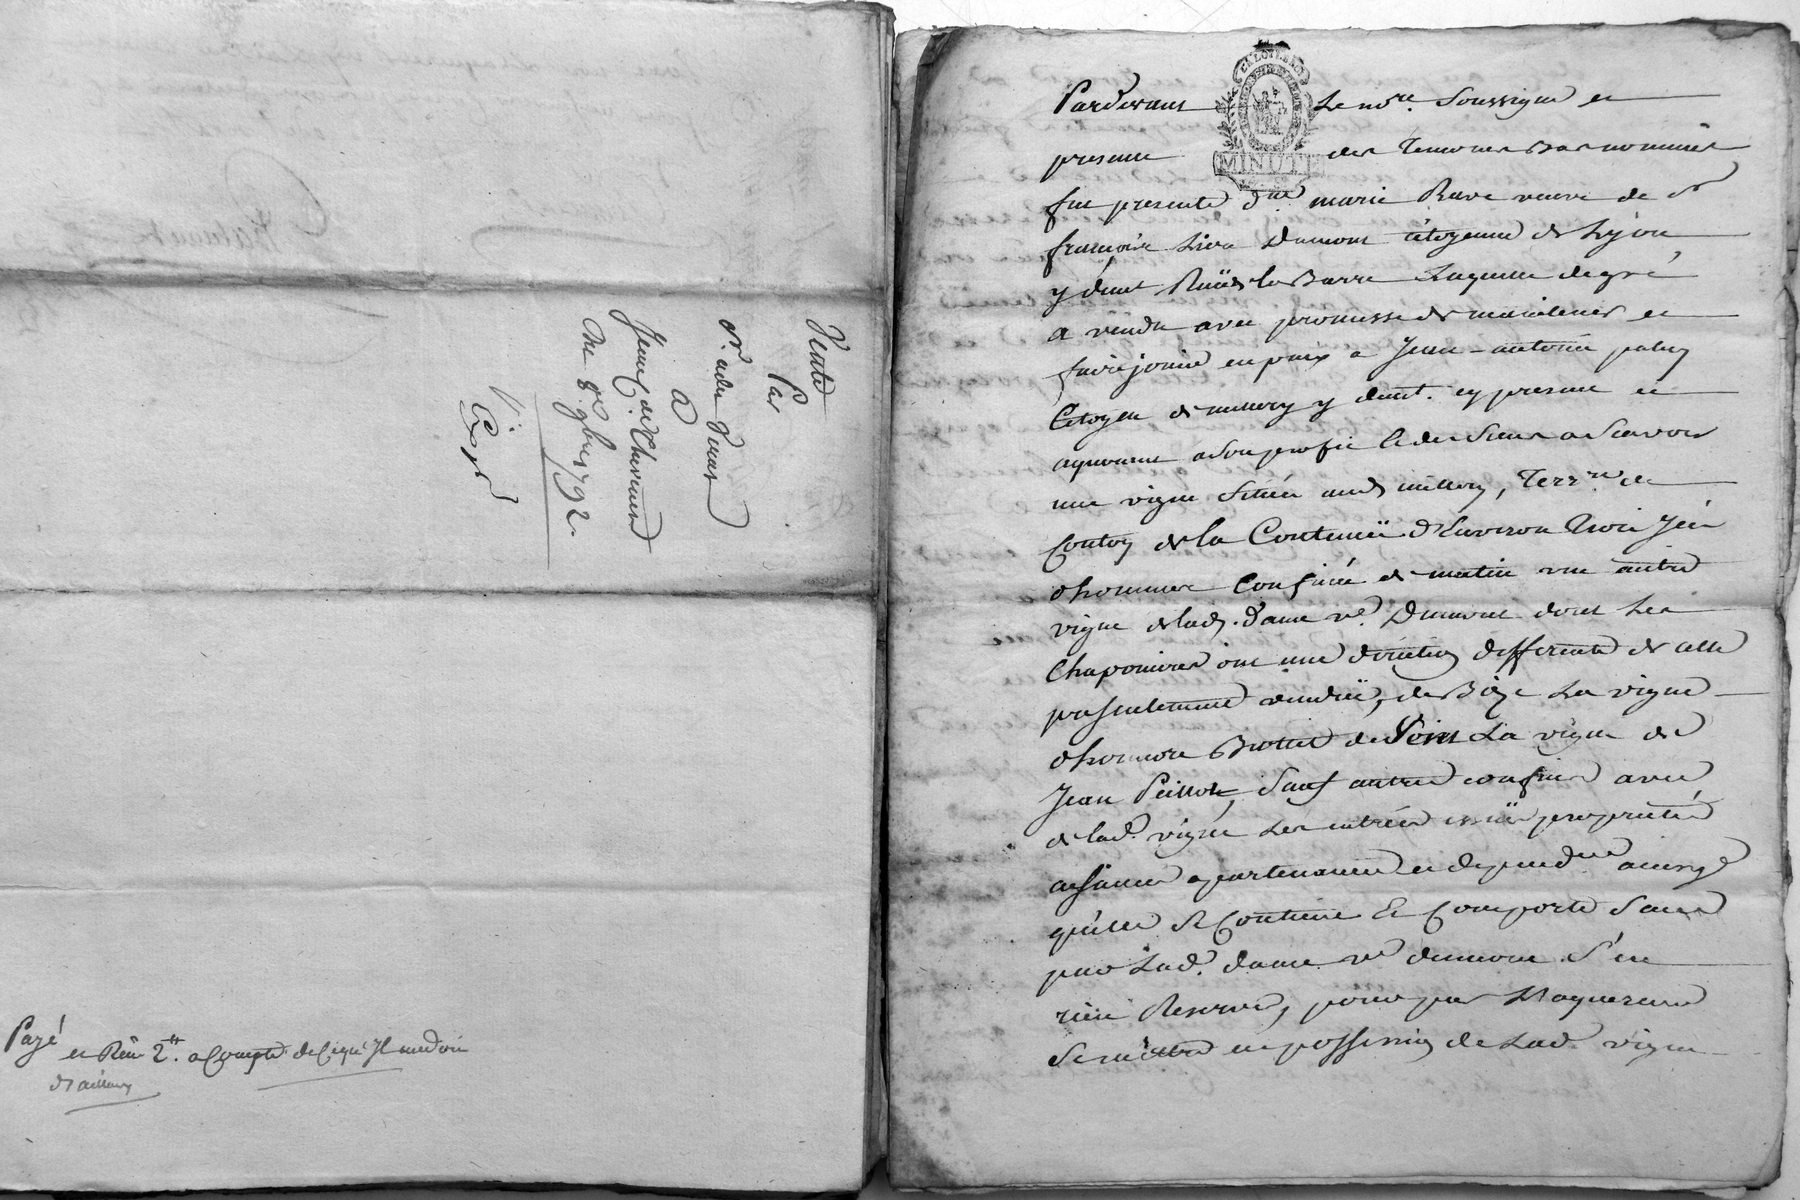 Vente
Par
à
Jean
De 8e 9bre 1792.
Payé
et Reçu 2tt. a Compte de Ce qui Il me doit
d'ailleurs
LA LOI LE ROI
MINUTE
Pardevant Le nore. Soussigné et
presence des Temoins Bas nommés
fut presente dme marie Rave veuve de Sr
françois Dumont Citoyenne de Lyon
y demt Rüe de la Barre Laquelle de gré
a vendu avec promesse de maintenir et
faire jouir en paix a Jean-antoine
Citoyen de millery y demt. cy present et
aquereur a Son profit et des Siens a Scavoir
une vigne Sitüée aud. millery, Terre. de
de la Contenüe d'Environ Trois
d'hommes Confinée de matin une autre
vigne de lad. dame ve. Dumont dont Les
Chaponieres ont une direction differente de celle
presentement vendüe, de Bize La vigne
d'honoré de Soir La vigne de
Jean Sauf autres confins avec
de lad. vigne Les entrées issües proprietés
aisances apartenances et dependces ainsy
qu'elle Se Contient Et Comporte Sans
par Lad. dame ve dumont S'en
rien Reserver, pour par L'aquereur
Se mettre en possession de Lad. vigne